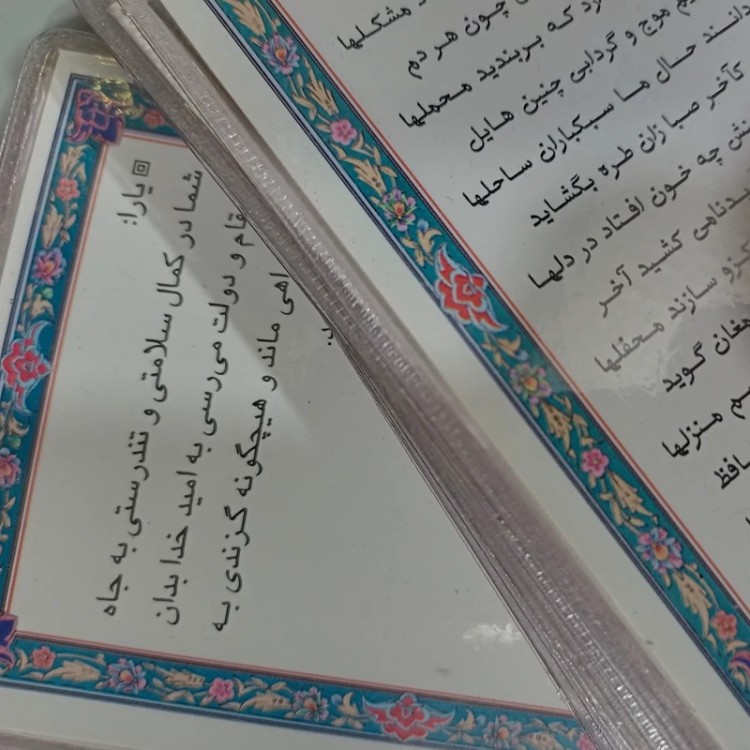 مشکلها
چون هر دم
که بربندید محملها
موج و گردابی چنین هایل
دانند حال ما سبکباران ساحلها
کآخر صبا زان طره بگشاید
چه خون افتاد در دلها
کشید آخر
کزو سازند محفلها
مغان گوید
منزلها
یارا:
شما در کمال سلامتی و تندرستی به جاه
و دولت می‌رسی به امید خدا بدان
ماند و هیچگونه گزندی به